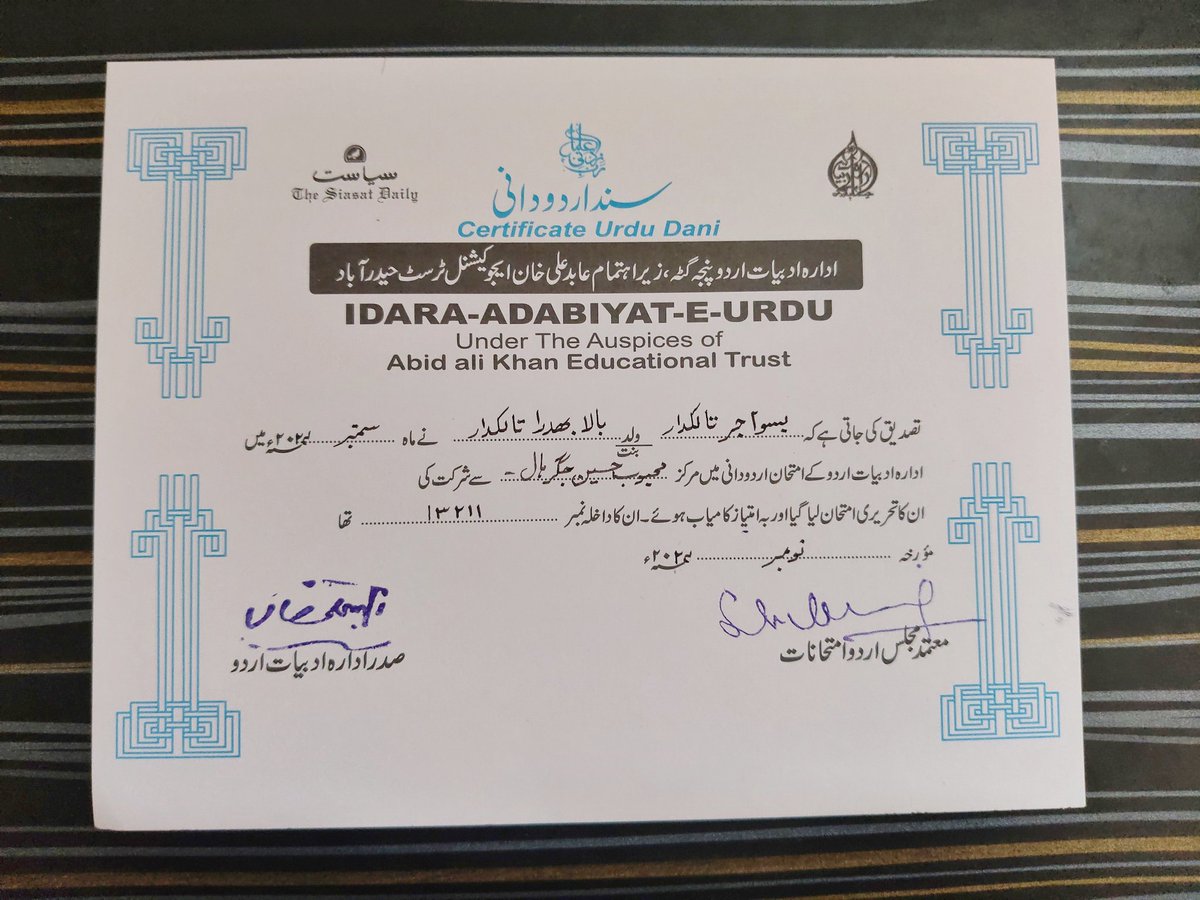 سیاست
The Siasat Daily
سند اردو دانی
Certificate Urdu Dani
ادارہ ادبیات اردو پنجہ گٹہ، زیر اہتمام عابد علی خان ایجوکیشنل ٹرسٹ حیدرآباد
IDARA-ADABIYAT-E-URDU
Under The Auspices of
Abid ali Khan Educational Trust
تصدیق کی جاتی ہے کہ یسواجر تالکدار ولد بنت بالا بھدرا تالکدار نے ماہ ستمبر ۲۰۲۲ء میں
ادارہ ادبیات اردو کے امتحان اردو دانی میں مرکز محبوب حسین جگر ہال۔ سے شرکت کی
ان کا تحریری امتحان لیا گیا اور بہ امتیاز کامیاب ہوئے۔ ان کا داخلہ نمبر ۱۳۲۱۱ تھا
مؤرخہ نومبر ۲۰۲۲ء
معتمد مجلس اردو امتحانات
صدر ادارہ ادبیات اردو